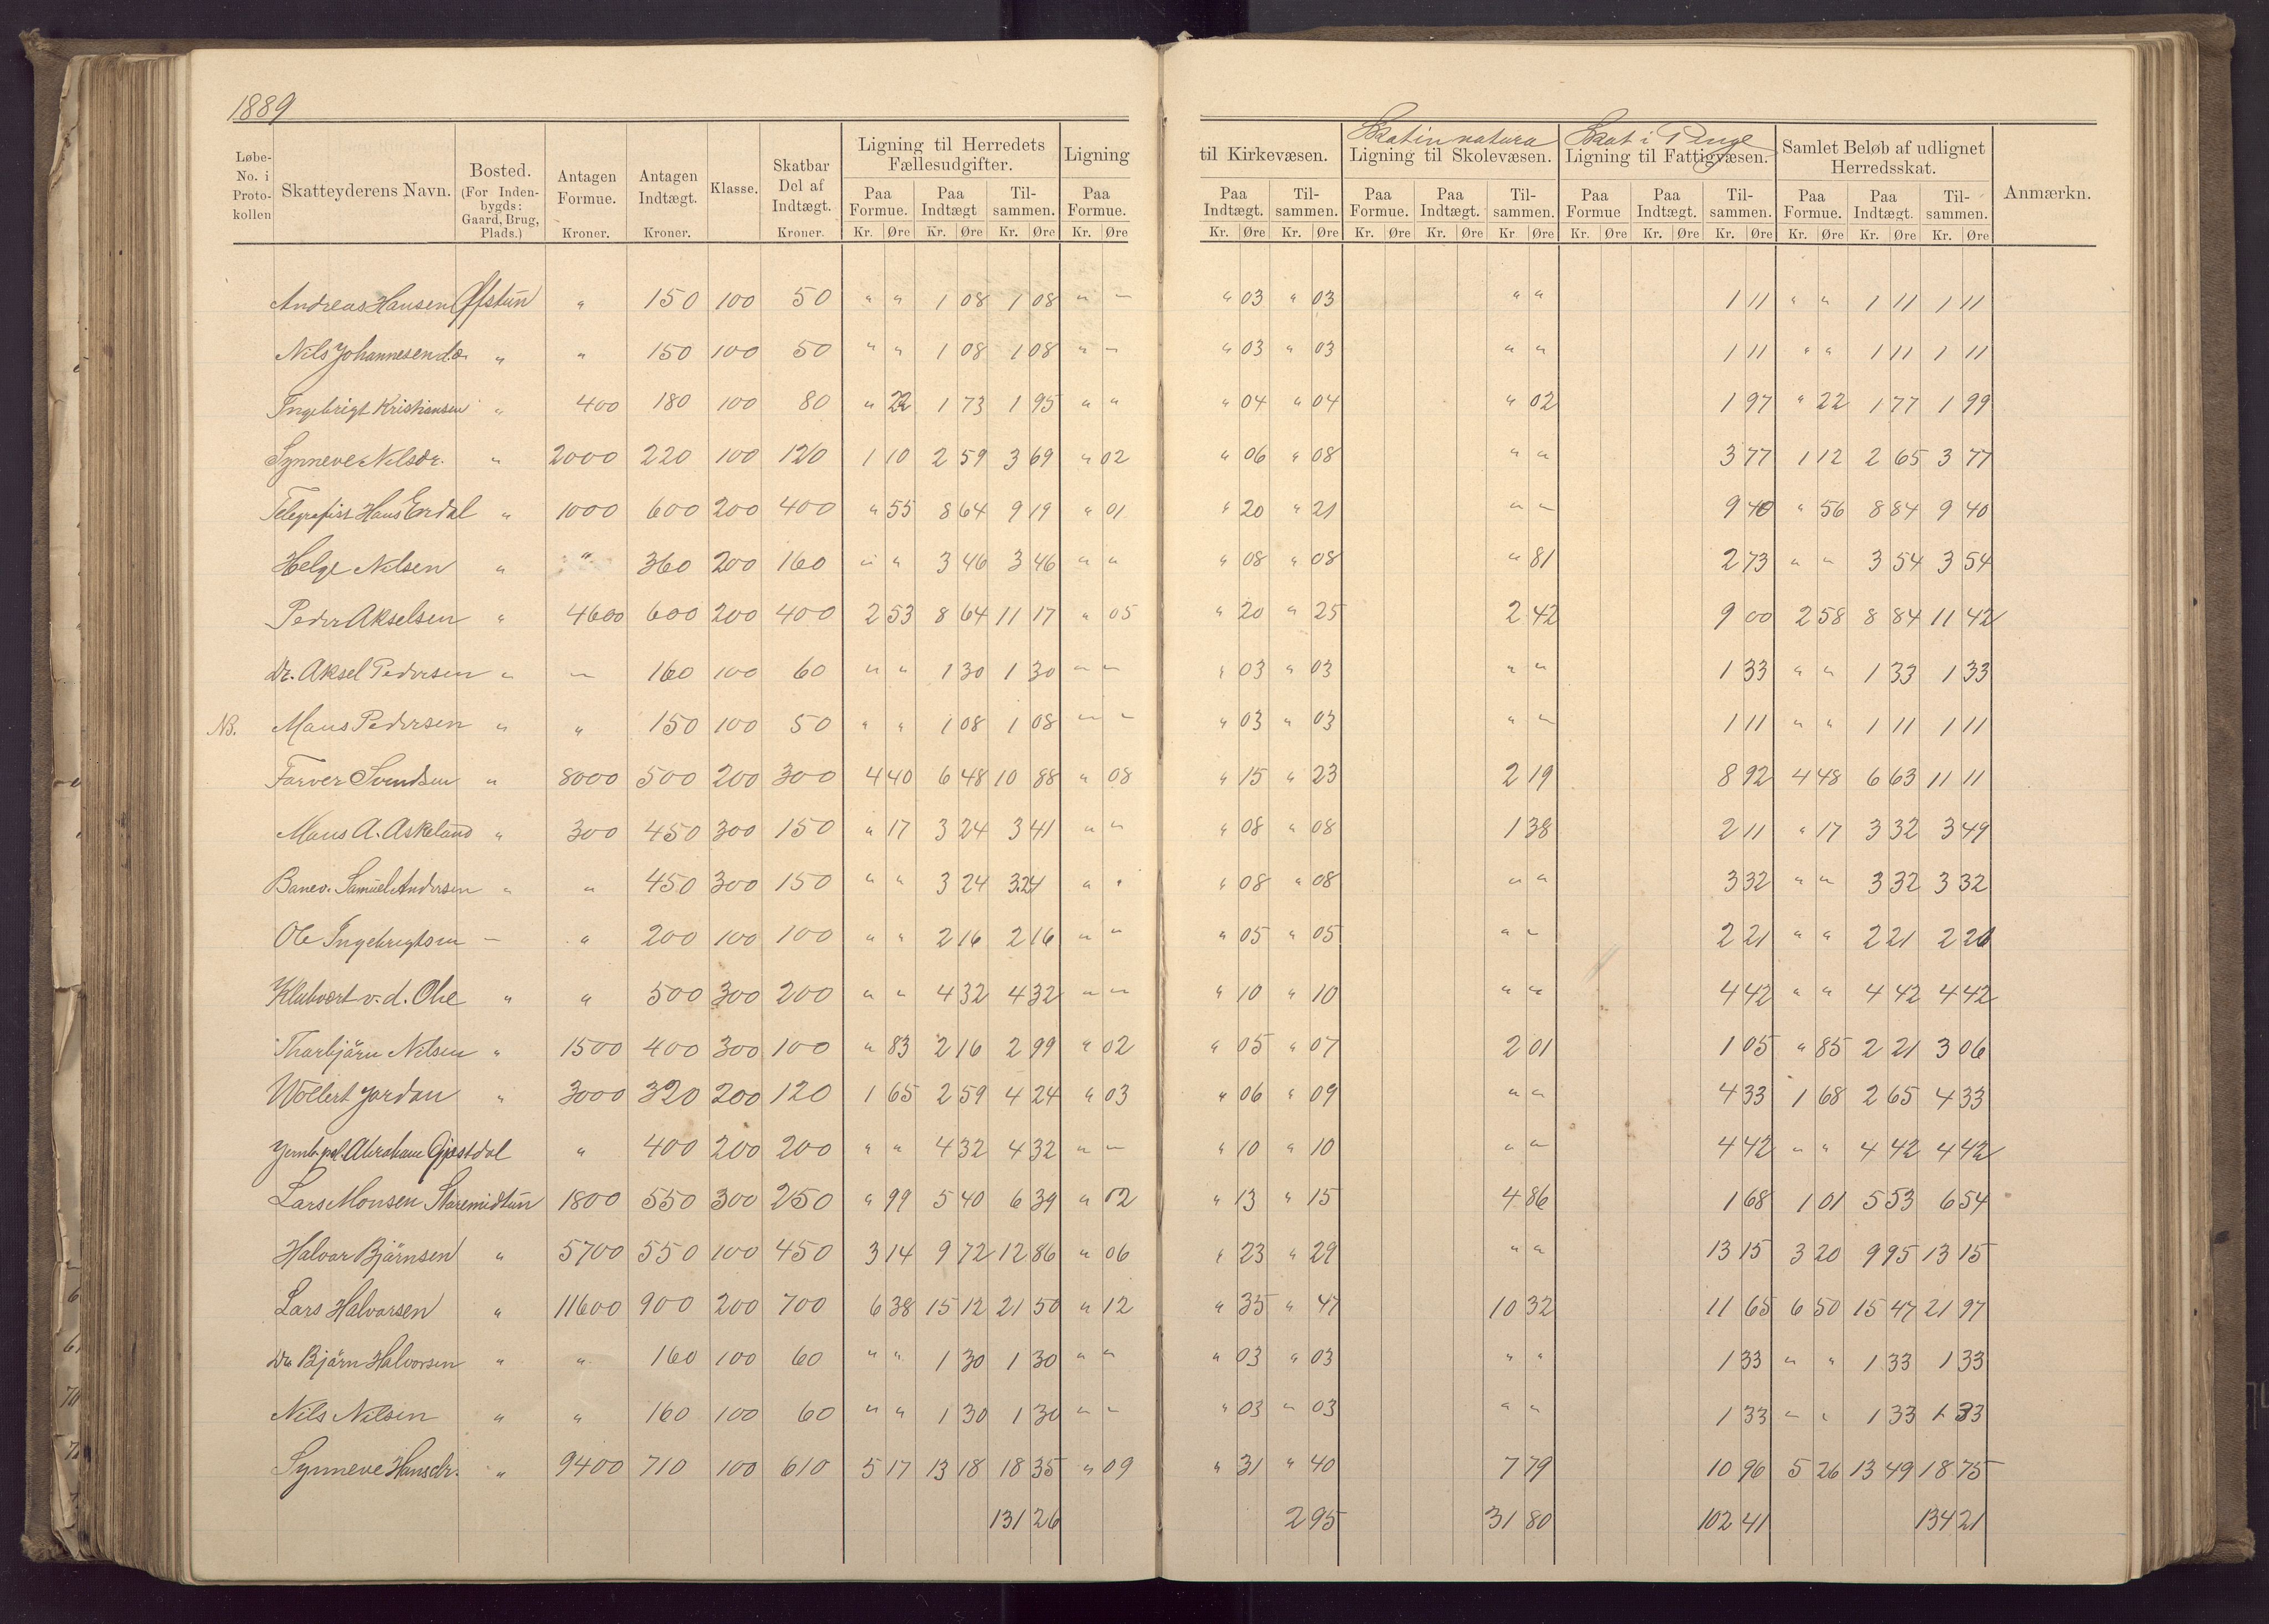 1889
Løbe- No. i Proto- kollen | Skatteyderens Navn. | Bosted. (For Inden- bygds: Gaard, Brug, Plads.) | Antagen Formue. Kroner. | Antagen Indtægt. Kroner. | Klasse. | Skatbar Del af Indtægt. Kroner. | Ligning til Herredets Fællesudgifter. Paa Formue. Kr. Øre | Paa Indtægt Kr. Øre | Til- sammen. Kr. Øre | Ligning Paa Formue. Kr. Øre | til Kirkevæsen. Paa Indtægt. Kr. Øre | Til- sammen. Kr. Øre | Skat in natura Ligning til Skolevæsen. Paa Formue. Kr. Øre | Paa Indtægt. Kr. Øre | Til- sammen. Kr Øre | Skat i Penge Ligning til Fattigvæsen. Paa Formue Kr. Øre | Paa Indtægt. Kr. Øre | Til- sammen. Kr. Øre | Samlet Beløb af udlignet Herredsskat. Paa Formue. Kr. Øre | Paa Indtægt. Kr. Øre | Til- sammen. Kr. Øre | Anmærkn.
Andreas Hansen Øfstun " 150 100 50 " " 1 08 1 08 " " " 03 " 03 " " 1 11 " " 1 11 1 11
Nils Johannesen do. " " 150 100 50 " " 1 08 1 08 " " " 03 " 03 " " 1 11 " " 1 11 1 11
Ingebrigt Kristiansen " 400 180 100 80 " 22 1 73 1 95 " " " 04 " 04 " 02 1 97 " 22 1 77 1 99
Synneve Nilsdr. " 2000 220 100 120 1 10 2 59 3 69 " 02 " 06 " 08 " " 3 77 1 12 2 65 3 77
Telegrafist Hans Erdal " 1000 600 200 400 " 55 8 64 9 19 " 01 " 20 " 21 " " 9 40 " 56 8 84 9 40
Helge Nilsen " " 360 200 160 " " 3 46 3 46 " " " 08 " 08 " 81 2 73 " " 3 54 3 54
Peder Akselsen " 4600 600 200 400 2 53 8 64 11 17 " 05 " 20 " 25 2 42 9 00 2 58 8 84 11 42
Dr. Aksel Pedersen " " 160 100 60 " " 1 30 1 30 " " " 03 " 03 " " 1 33 " " 1 33 1 33
NB. Mans Pedersen " " 150 100 50 " " 1 08 1 08 " " " 03 " 03 " " 1 11 " " 1 11 1 11
Farver Svendsen " 8000 500 200 300 4 40 6 48 10 88 " 08 " 15 " 23 2 19 8 92 4 48 6 63 11 11
Mans A. Askeland " 300 450 300 150 " 17 3 24 3 41 " " " 08 " 08 1 38 2 11 " 17 3 32 3 49
Banev. Samuel Andersen " " 450 300 150 " " 3 24 3 24 " " " 08 " 08 " " 3 32 " " 3 32 3 32
Ole Ingebrigtsen " " 200 100 100 " " 2 16 2 16 " " " 05 " 05 " " 2 21 " " 2 21 2 21
Klubvert v. d. Ohe " " 500 300 200 " " 4 32 4 32 " " " 10 " 10 " " 4 42 " " 4 42 4 42
Thorbjörn Nilsen " 1500 400 300 100 " 83 2 16 2 99 " 02 " 05 " 07 2 01 1 05 " 85 2 21 3 06
Wollert Jordan " 3000 320 200 120 1 65 2 59 4 24 " 03 " 06 " 09 " " 4 33 1 68 2 65 4 33
Abraham Gjestdal " 400 200 200 " " 4 32 4 32 " " " 10 " 10 " " 4 42 " " 4 42 4 42
Lars Monsen Skaremidtun 1800 550 300 250 " 99 5 40 6 39 " 02 " 13 " 15 4 86 1 68 1 01 5 53 6 54
Halvor Björnsen " 5700 550 100 450 3 14 9 72 12 86 " 06 " 23 " 29 " " 13 15 3 20 9 95 13 15
Lars Halvorsen " 11600 900 200 700 6 38 15 12 21 50 " 12 " 35 " 47 10 32 11 65 6 50 15 47 21 97
Dr. Björn Halvorsen " " 160 100 60 " " 1 30 1 30 " " " 03 " 03 " " 1 33 " " 1 33 1 33
Nils Nilsen " " 160 100 60 " " 1 30 1 30 " " " 03 " 03 " " 1 33 " " 1 33 1 33
Synneve Hansdr. " 9400 710 100 610 5 17 13 18 18 35 " 09 " 31 " 40 7 79 10 96 5 26 13 49 18 75
131 26 2 95 31 80 102 41 134 21